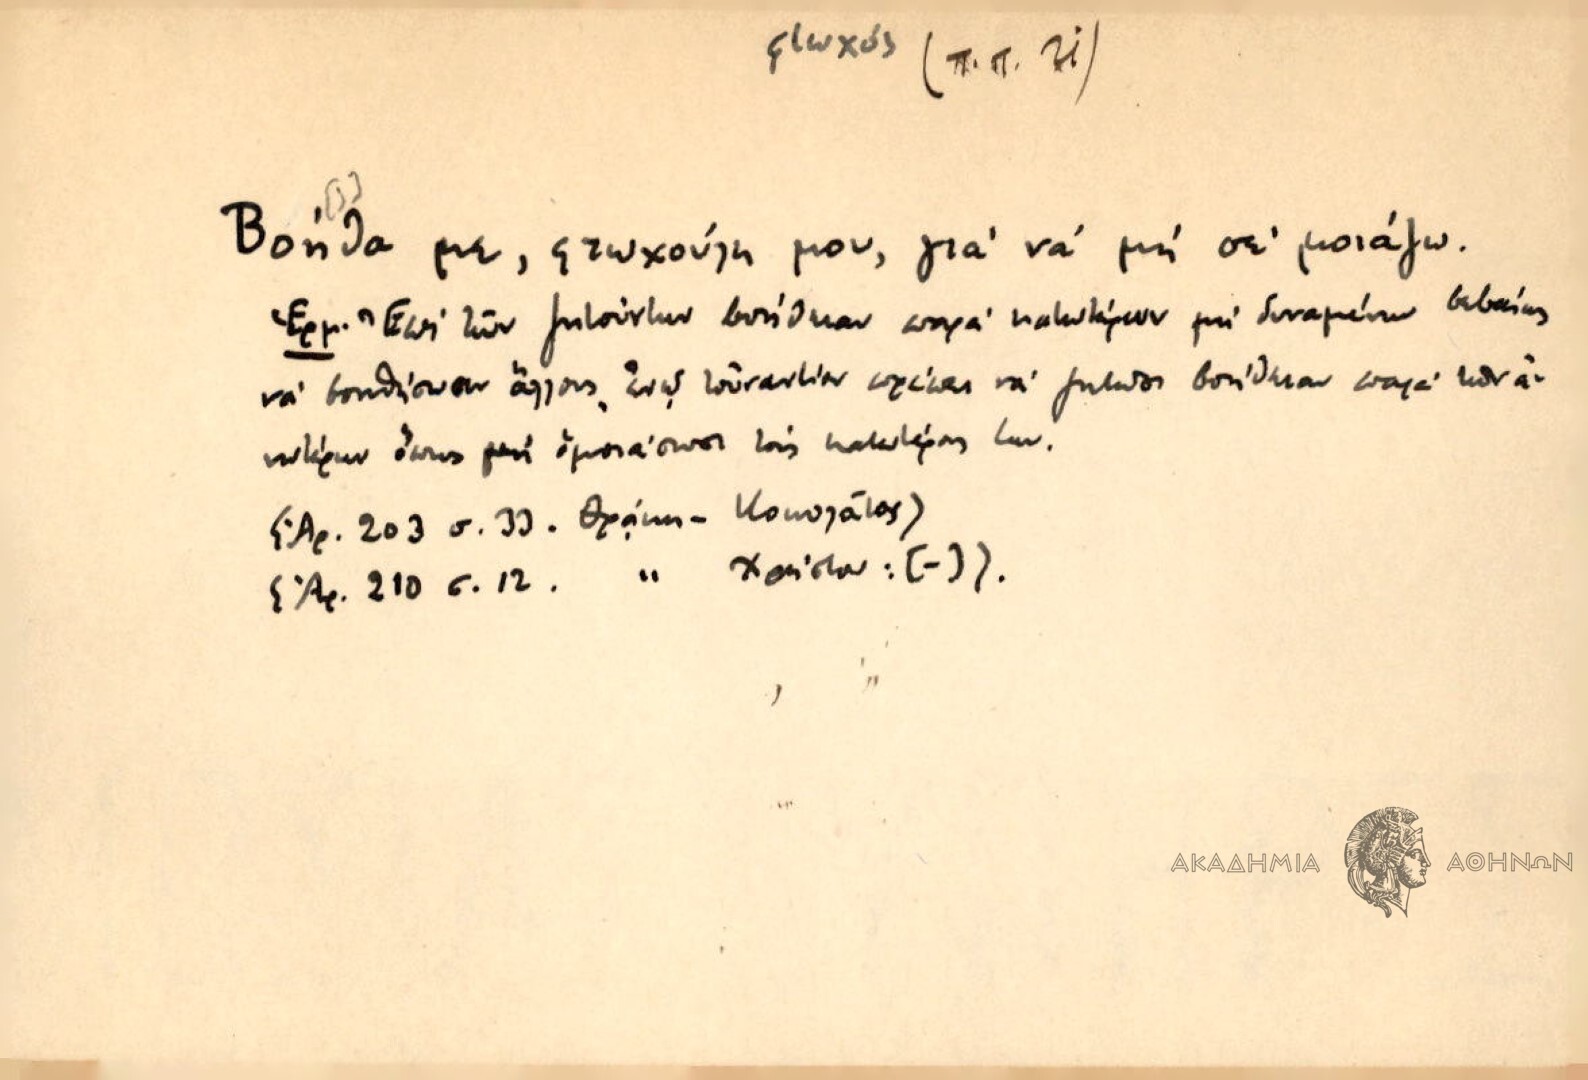 φτωχός (π.π. 2i)
Βοήθα με, φτωχούλη μου, γιά νά μή σέ μοιάζω.
Ἑρμ. Ἐπί τῶν ζητούντων βοήθειαν παρά κατωτέρων μή δυναμένων βεβαίως
νά βοηθήσωσιν ἄλλους, ἐνῷ τοὐναντίον πρέπει νά ζητῶσι βοήθειαν παρά τῶν ἀ-
νωτέρων ὅπως μή ὁμοιάσωσι τούς κατωτέρους των.
(Ἀρ. 203 σ. 33. Θράκη -
(Ἀρ. 210 σ. 12. " : [-]).
ΑΚΑΔΗΜΙΑ ΑΘΗΝΩΝ